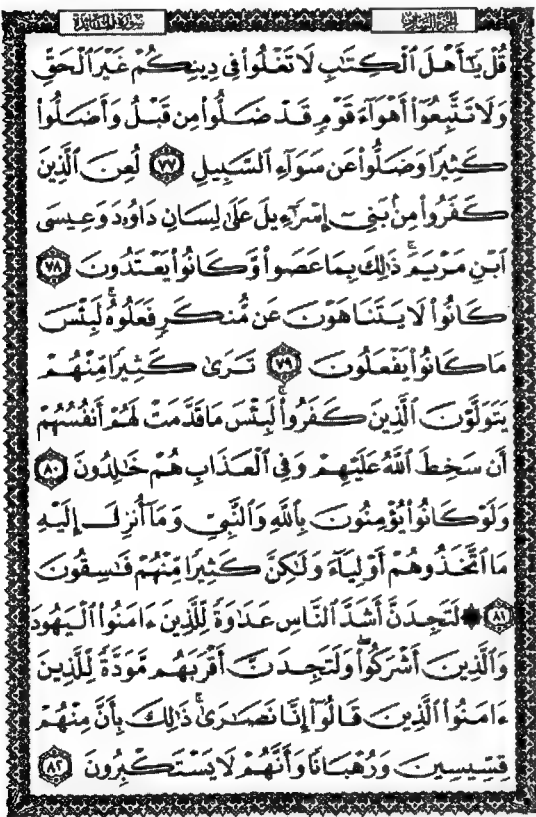 سُورَةُ المَائِدَة
الجُزْءُ السَّادِسُ
قُلْ يَٰٓأَهْلَ ٱلْكِتَٰبِ لَا تَغْلُوا۟ فِى دِينِكُمْ غَيْرَ ٱلْحَقِّ
وَلَا تَتَّبِعُوٓا۟ أَهْوَآءَ قَوْمٍ قَدْ ضَلُّوا۟ مِن قَبْلُ وَأَضَلُّوا۟
كَثِيرًا وَضَلُّوا۟ عَن سَوَآءِ ٱلسَّبِيلِ ٧٧ لُعِنَ ٱلَّذِينَ
كَفَرُوا۟ مِنۢ بَنِىٓ إِسْرَٰٓءِيلَ عَلَىٰ لِسَانِ دَاوُۥدَ وَعِيسَى
ٱبْنِ مَرْيَمَ ۚ ذَٰلِكَ بِمَا عَصَوا۟ وَّكَانُوا۟ يَعْتَدُونَ ٧٨
كَانُوا۟ لَا يَتَنَاهَوْنَ عَن مُّنكَرٍ فَعَلُوهُ ۚ لَبِئْسَ
مَا كَانُوا۟ يَفْعَلُونَ ٧٩ تَرَىٰ كَثِيرًا مِّنْهُمْ
يَتَوَلَّوْنَ ٱلَّذِينَ كَفَرُوا۟ ۚ لَبِئْسَ مَا قَدَّمَتْ لَهُمْ أَنفُسُهُمْ
أَن سَخِطَ ٱللَّهُ عَلَيْهِمْ وَفِى ٱلْعَذَابِ هُمْ خَٰلِدُونَ ٨٠
وَلَوْ كَانُوا۟ يُؤْمِنُونَ بِٱللَّهِ وَٱلنَّبِىِّ وَمَآ أُنزِلَ إِلَيْهِ
مَا ٱتَّخَذُوهُمْ أَوْلِيَآءَ وَلَٰكِنَّ كَثِيرًا مِّنْهُمْ فَٰسِقُونَ
٨١ ۞ لَتَجِدَنَّ أَشَدَّ ٱلنَّاسِ عَدَٰوَةً لِّلَّذِينَ ءَامَنُوا۟ ٱلْيَهُودَ
وَٱلَّذِينَ أَشْرَكُوا۟ ۖ وَلَتَجِدَنَّ أَقْرَبَهُم مَّوَدَّةً لِّلَّذِينَ
ءَامَنُوا۟ ٱلَّذِينَ قَالُوٓا۟ إِنَّا نَصَٰرَىٰ ۚ ذَٰلِكَ بِأَنَّ مِنْهُمْ
قِسِّيسِينَ وَرُهْبَانًا وَأَنَّهُمْ لَا يَسْتَكْبِرُونَ ٨٢